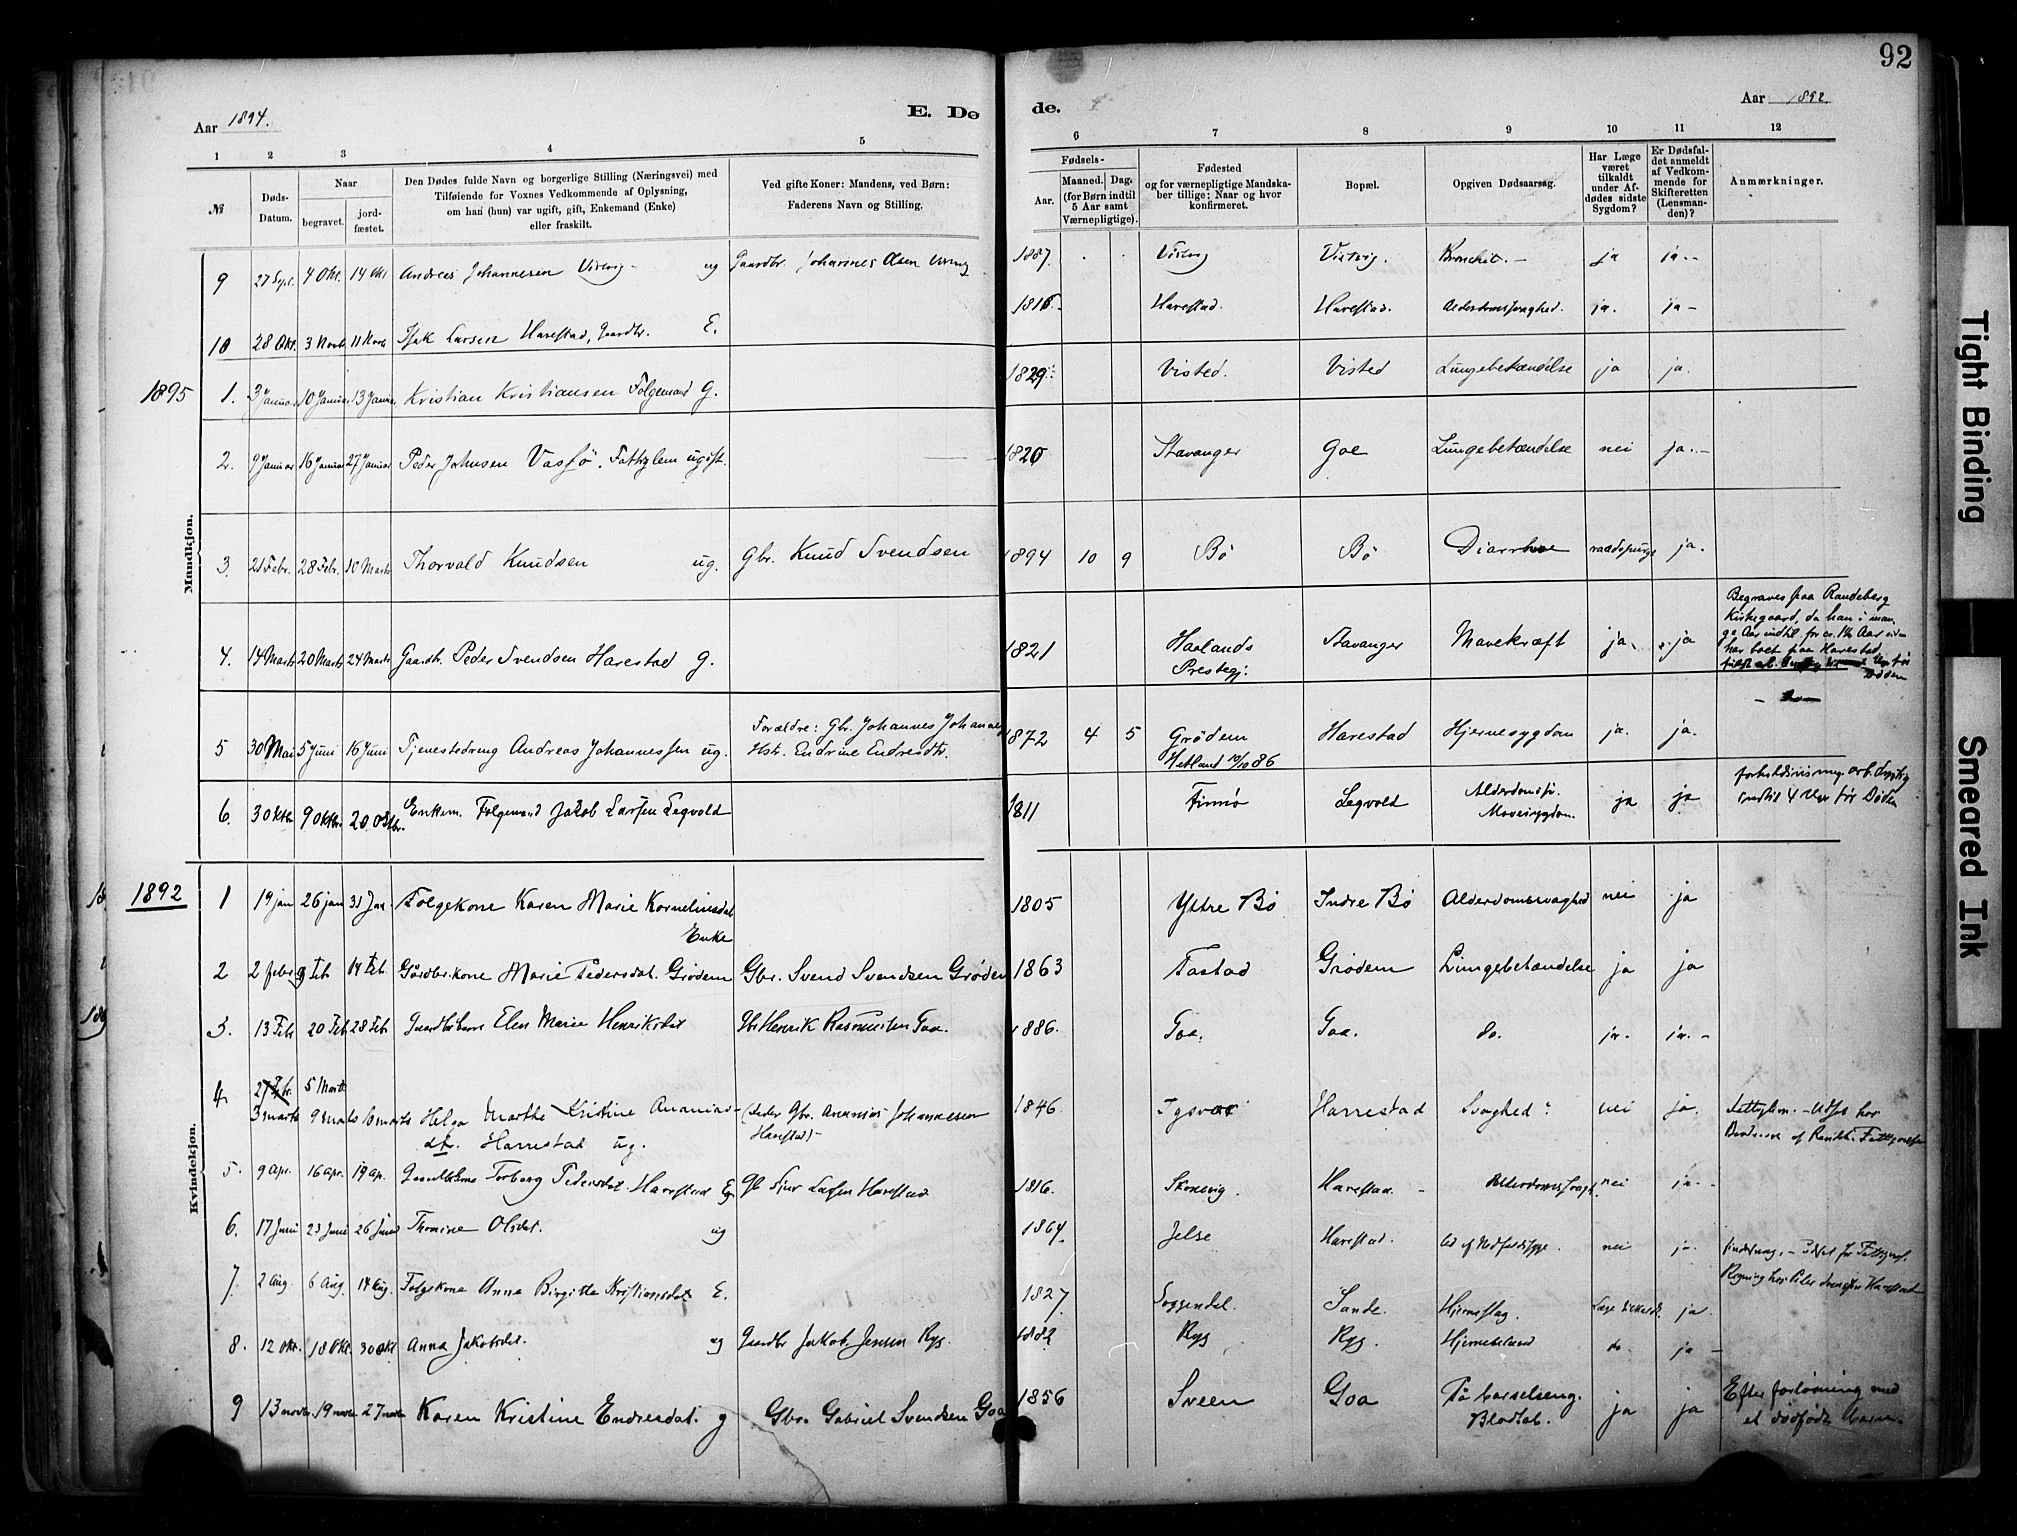 92
Aar 1894. E. Dø de. Aar 1892.
1 2 3 4 5 6 7 8 9 10 11 12
№
Døds-Datum.
Naar
begravet.
jord-fæstet.
Den Dødes fulde Navn og borgerlige Stilling (Næringsvei) med
Tilføiende for Voxnes Vedkommende af Oplysning,
om han (hun) var ugift, gift, Enkemand (Enke)
eller fraskilt.
Ved gifte Koner: Mandens, ved Børn:
Faderens Navn og Stilling.
Fødsels-
Aar.
Maaned. Dag.
(for Børn indtil
5 Aar samt
Værnepligtige).
Fødested
og for værnepligtige Mandska-
ber tillige: Naar og hvor
konfirmeret.
Bopæl.
Opgiven Dødsaarsag.
Har Læge
været
tilkaldt
under Af-
dødes sidste
Sygdom?
Er Dødsfal-
det anmeldt
af Vedkom-
mende for
Skifteretten
(Lensman-
den)?
Anmærkninger.
Mandkjøn.
9 27 Sept. 4 Okt. 14 Okt Andreas Johannesen Vistvig - ug Gaardbr. Johannes Olsen 1887. Vistvig Vistvig. Bronchit. - ja ja. -
10 28 Okt. 3 Novb 11 Novb Isak Larsen Harestad, Gaardbr. E. 1816. Harestad. Harestad. Alderdomssvaghed. ja. ja -
1895 1. 3 Januar 10 Januar 13 Januar Kristian Kristiansen Følgemand G. 1829 Visted. Visted Lungebetændelse ja ja.
2. 9 Januar 16 Januar 27 Januar Peder Johnsen Vasfø. Fattiglem ugift. 1820 Stavanger Goe Lungebetændelse nei ja. -
3. 21 Febr. 28 Febr. 10 Marts Thorvald Knudsen ug. Gbr. Knud Svendsen 1894 10 9 Bø Bø Diarrhoe raadspurgt ja.
4. 14 Marts 20 Marts 24 Marts Gaardbr. Peder Svendsen Harestad g. 1821 Haalands Prestegj. Stavanger Mavekræft ja. ja
Begraves paa Randeberg
Kirkegaard, da han i man-
ge Aar indtil for ca. 1½ Aar siden
har boet paa Harestad,
før
Døden
5 30 Mai 5 Juni 16 Juni Tjenestedreng Andreas Johannessen ug. Forældre: Gbr. Johannes Johannes
Hstr. Endrine Endresdtr. 1872 4 5 Grødem Harestad Hjernesygdom ja. ja.
Hetland 10/10 86
6. 3 Oktb 9 Oktbr. 20 Oktbr. Enkem. Følgemand Jakob Larsen Leqvold 1811 Finnø Leqvold Alderdomssv.
Mavesygdom. ja ja
indtil 4 Uger før Døden
Kvindekjøn.
1892 1 19 jan 26 jan 31 Jan Følgekone Karen Marie Korneliusdat
Enke 1805 Yttre Bø Indre Bø Alderdomssvaghed nei ja
2 2 febr 9 Feb 14 Feb. Gårdbr.kone Marie Pedersdat. Grødem Gbr. Svend Svendsen Grødem 1863 Tastad Grødem Lungebetændelse ja ja
3. 13 Feb 20 Feb 28 Feb Gaardbr.barn Elen Marie Henriksdat Gbr Henrik Rasmussen Goa. 1886. Goa. Goa. do. ja. ja. -
4. 27 Feb. 5 Marts
3 marts 9 marts 6 marts Helga Marthe Kristine Ananias-
dtr. Harrestad ug. (Peder Gbr. Ananias Johannesen
Harestad) - 1846. Tysvær Harrestad Svaghed? nei ja. Fattiglem. -
5. 9 Apr. 16 apr. 19 ap. Torborg Pedersdat. Harestad Gbr Sjur Larsen Harestad 1816. Skonevig. Harestad. - Alderdomssvagh. nei ja. -
6. 17 Juni 23 Juni 26 Juni Thomine Olsdat. ug 1864 Jelse Harestad. nei ja.
7. 2 Aug. 6 Aug. 14 Aug. Følgekone Anna Birgitte Kristiansdat E. 1827 Soggendal. Sande. Hjerneslag. ja.
8. 12 Okt. 18 Okt. 30 Okt Anna Jakobsdat. ug Gaardbr Jakob Jensen Ryg. 1882 Ryg Ryg. do. ja -
9 13 novbr. 19 novbr. 27 novbr. Karen Kristine Endresdat. g Gbr. Gabriel Svendsen Goa 1856 Sveen Goa På barselseng.
Blodtab. ja ja Efter forløsning med
et dødfødt barn.
Tight Binding
Smeared Ink